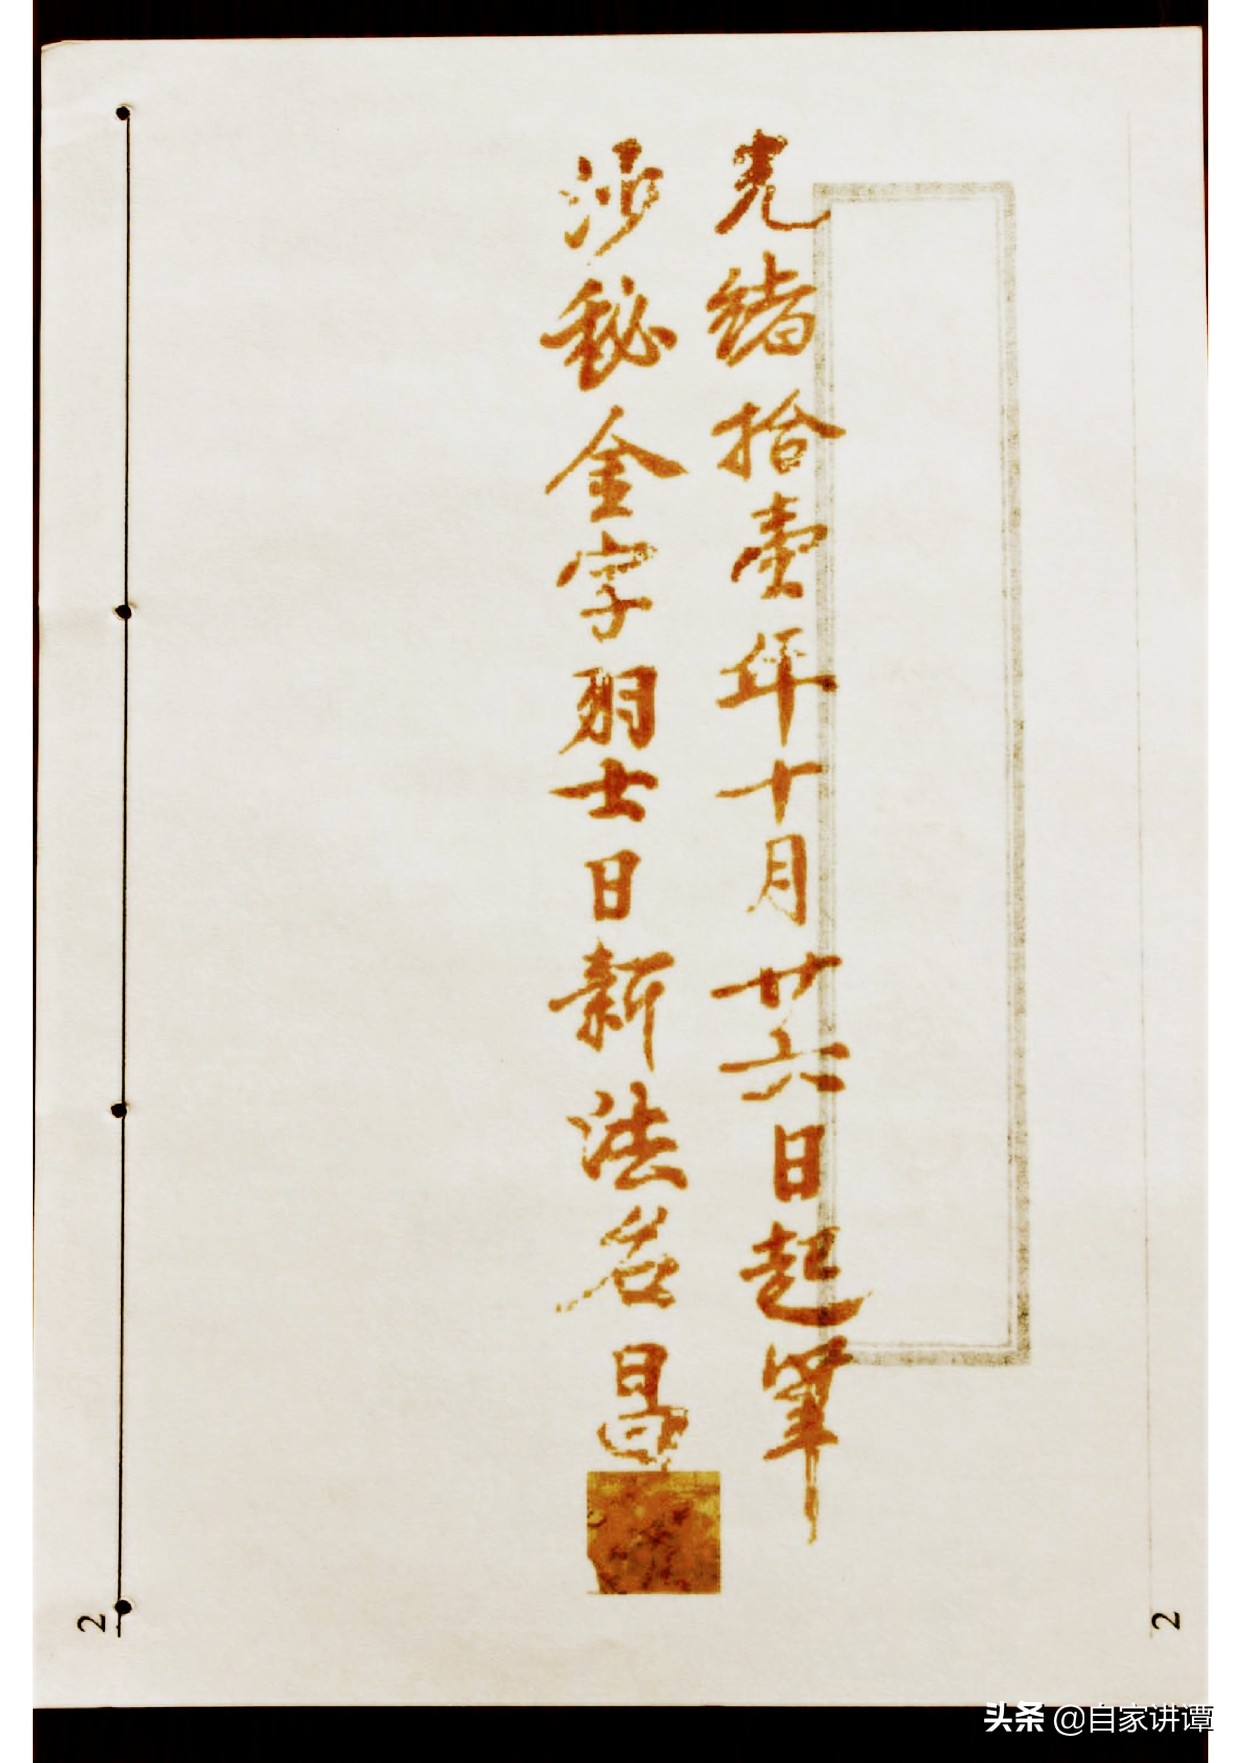 光緒拾壹年十月廿六日起筆
沙秘金字羽士日新法名昌
2
2
头条 @自家讲谭